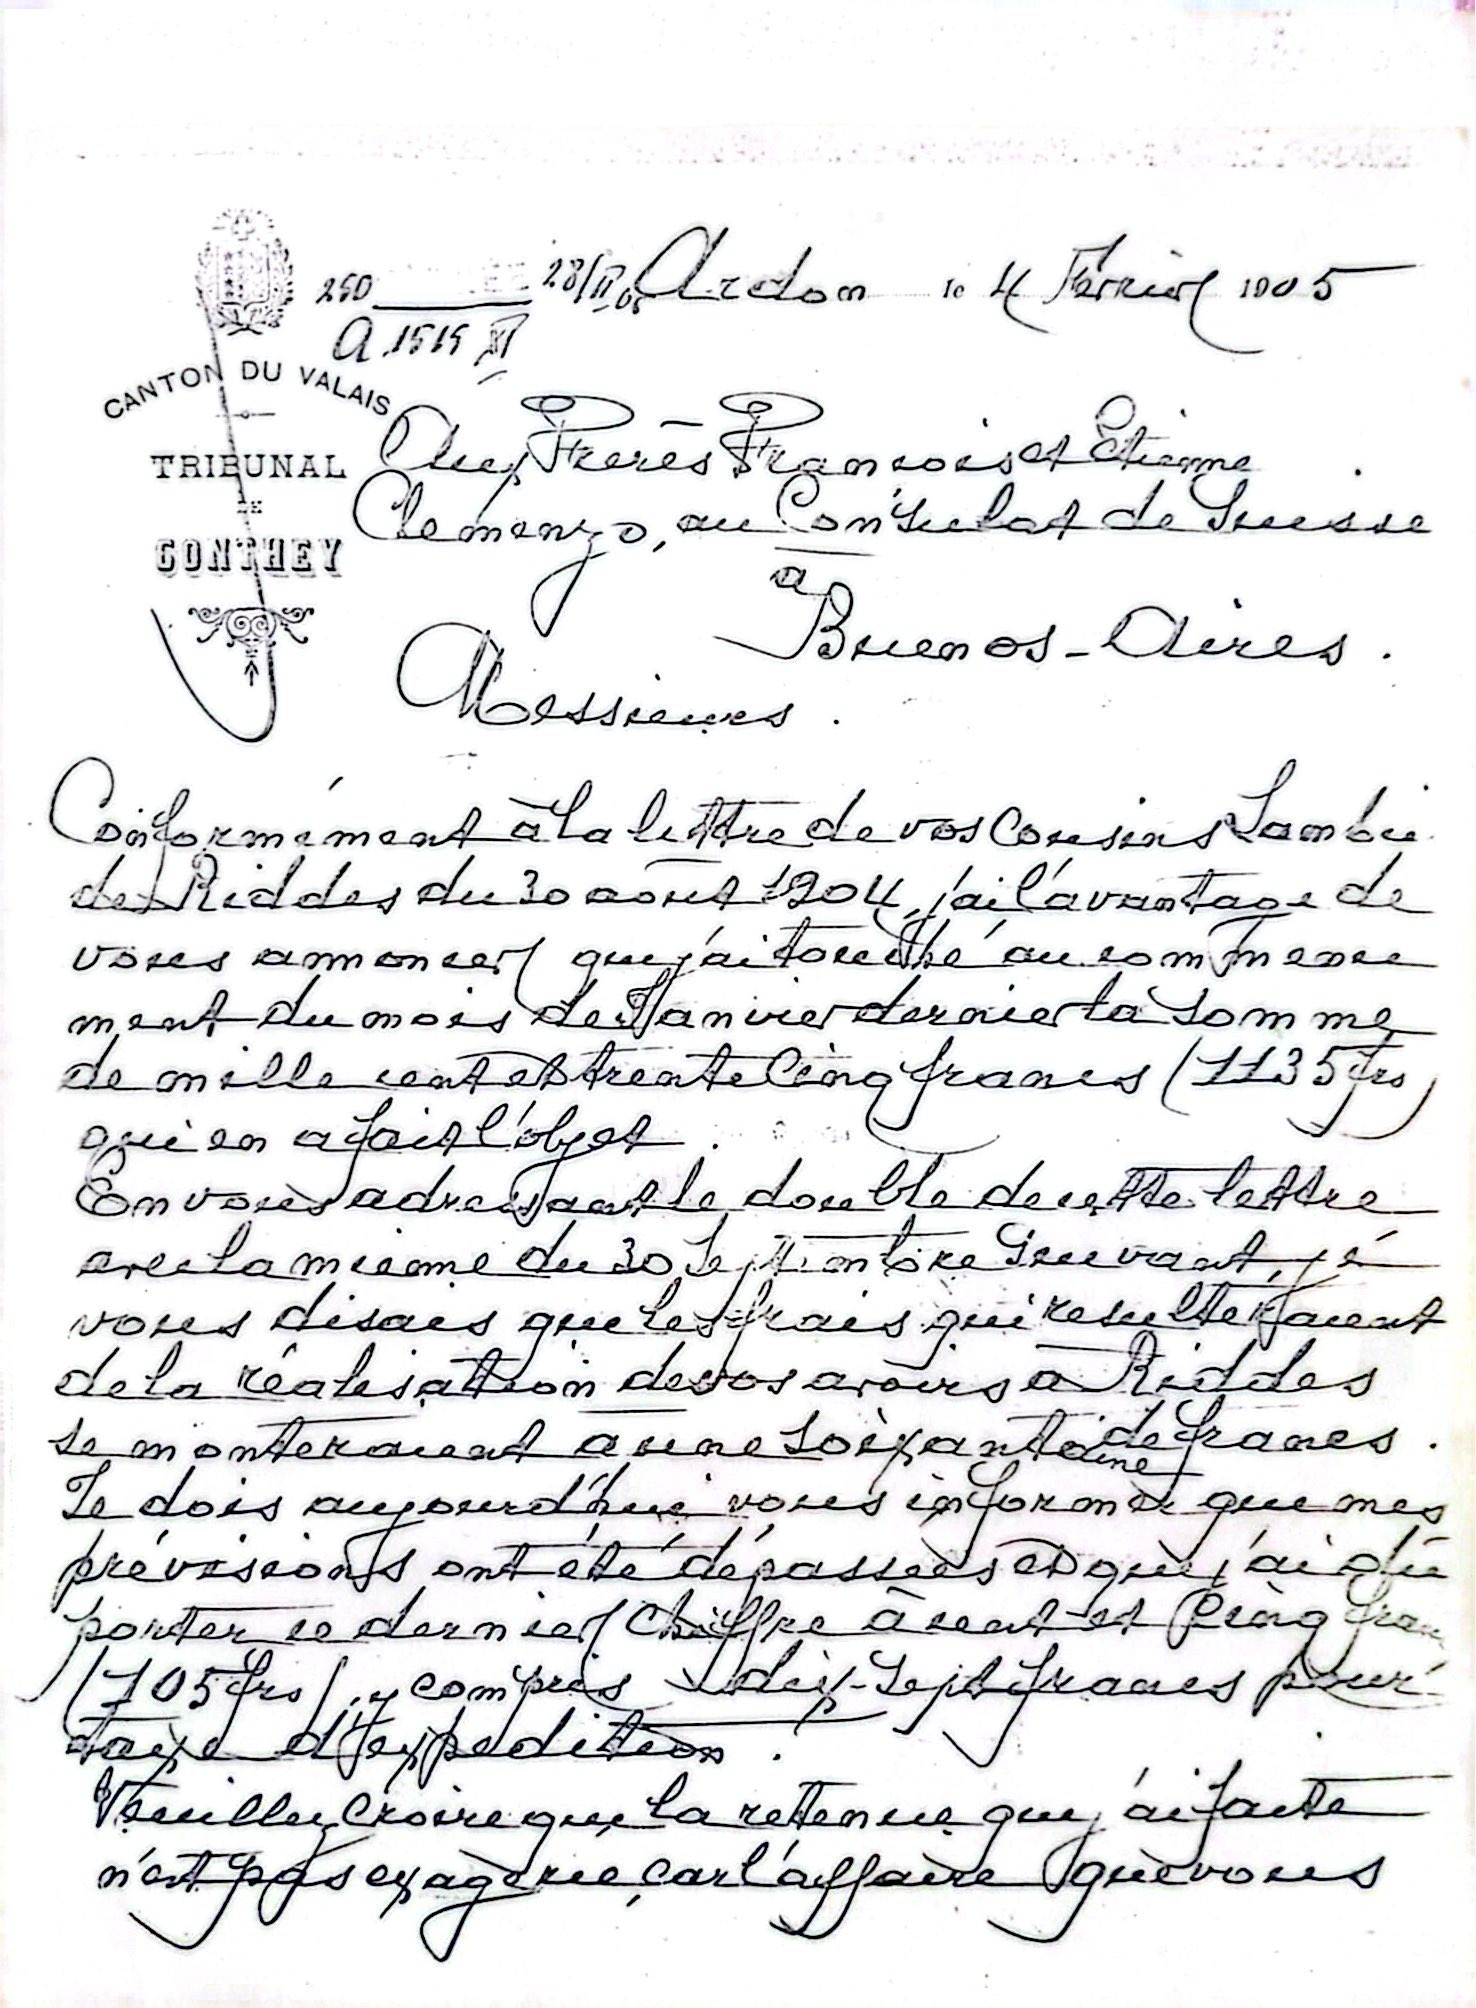 250 28/II 05 Ardon le 4 Février 1905
A 1515 XI
CANTON DU VALAIS
TRIBUNAL
DE
CONTHEY
Aux Frères François et Etienne
Clemenzo, au Consulat de Suisse
a
Buenos-Aires.
Messieurs.
Conformément à la lettre de vos Cousins Lambie
de Riddes du 30 août 1904, j'ai l'avantage de
vous annoncer que j'ai touché au commence
ment du mois de Janvier dernier la Somme
de mille cent et trente Cinq francs (1135 frs)
qui en a fait l'objet.
En vous adressant le double de cette lettre
avec la mienne du 30 Septembre Suivant, je
vous disais que les frais qui resulteraient
de la réalisation de vos avoirs a Riddes
se monteraient a une Soixantaine de francs.
Je dois aujourd'hui vous informer que mes
prévisions ont été dépassées et que j'ai dû
porter ce dernier Chiffre à cent et Cinq fran
(105 frs), y compris dix-Sept francs pour
taxe d'expedition.
Veuillez Croire que la retenue que j'ai faite
n'est pas exagerée, car l'affaire que vous